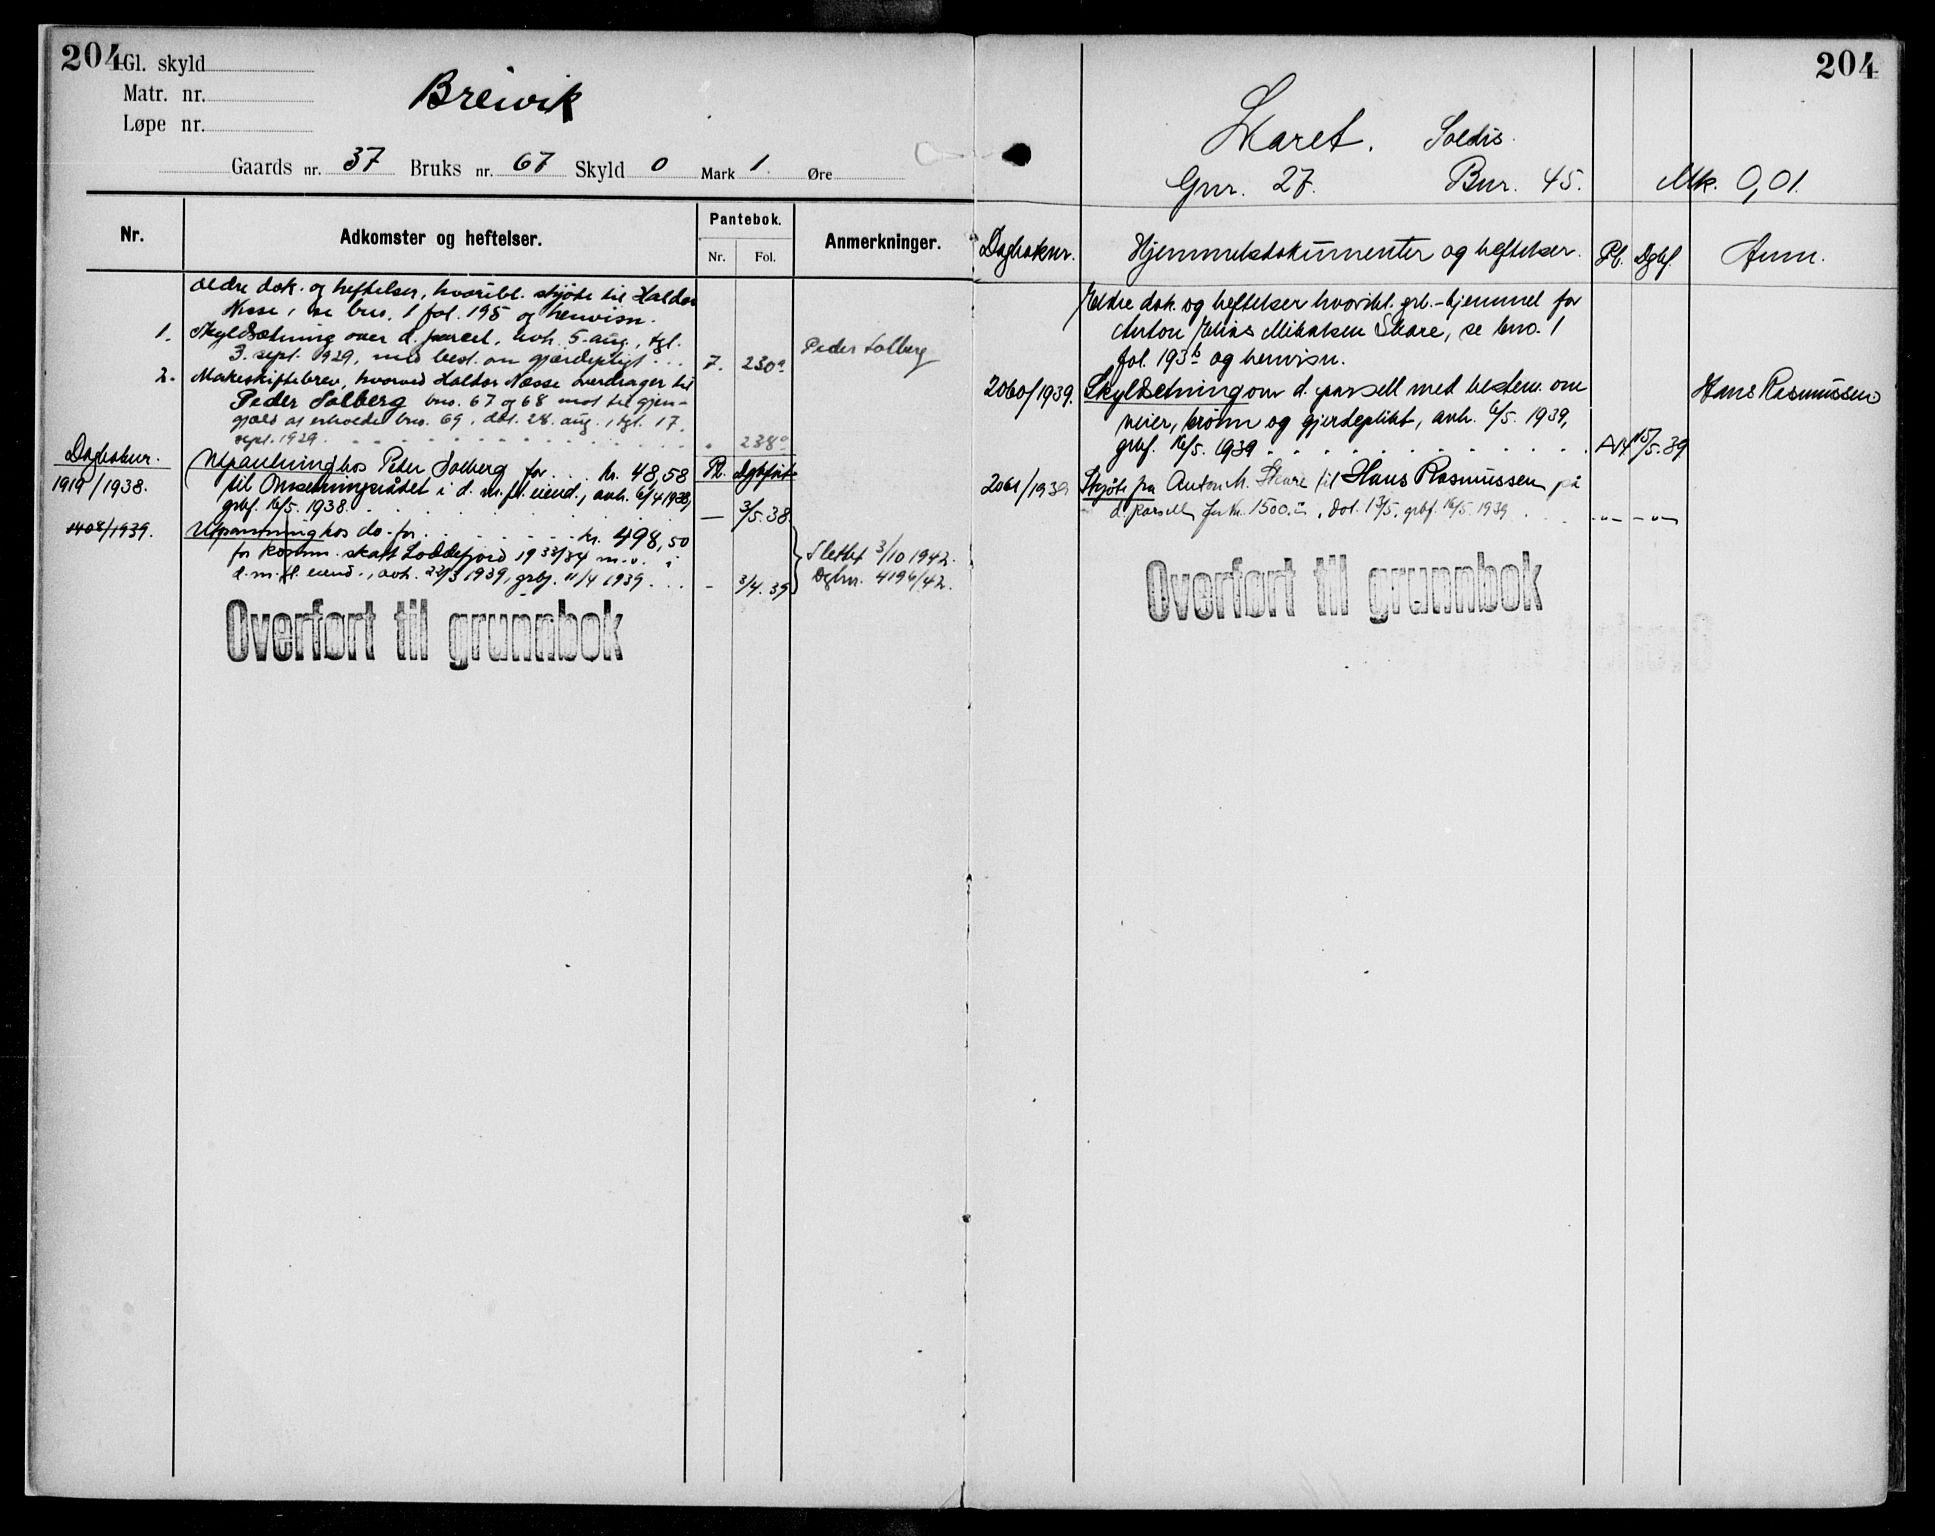 204
Gl. skyld
Matr. nr.
Løpe nr.
Breivik
Gaards nr. 37 Bruks nr. 67 Skyld 0 Mark 1 Øre
Nr.
Adkomster og heftelser.
Pantebok.
Nr. Fol.
Anmerkninger.
Ældre dok. og heftelser, hvoribl. skjøte til Haldor
Nesse, se bno. 1 fol. 195 og henvisn.
1. Skyldsetning over d. parcel, avh. 5. aug., tgl.
3. sept. 1929, med best. om gjærdepligt . . 7. 230a Peder Solberg
2. Makeskiftebrev, hvorved Haldor Nesse overdrager til
Peder Solberg bno. 67 og 68 mot til gjen-
gjæld at erholde bno. 69, dat. 28. aug., tgl. 17.
sept. 1929 . . . " 238a
Dagboknr.
1919/1938. Utpantning hos Peder Solberg for . . kr. 48,58 Pb. Dgbført
til Omsetningsrådet i d. m. fl. eiend., avh. 6/4 1938,
grbf. 16/5. 1938. — 3/5.38
1408/1939. Utpantning hos do. for . . . kr. 498,50
for komm. skatt Loddefjord 1933/34 m.v. i
d. m. fl. eiend., avh. 22/3 1939, grbf. 11/4 1939 . . . - 3/4.39
Slettet 3/10 1942.
Dgbnr. 4196/42.
Overført til grunnbok
204
Skaret. Soldis.
Gnr. 27. Bnr. 45. Mk. 0,01.
Dagboknr. Hjemmelsdokumenter og heftelser. Pb. Dgbf. Anm.
Eldre dok. og heftelser hvoribl. grb.-hjemmel for
Anton Elias Mikalsen Skare, se bno. 1
fol. 193b og henvisn.
2060/1939. Skyldsetning over d. parsell med bestem. om
veier, brønn og gjerdeplikt, avh. 6/5. 1939,
grbf. 16/5. 1939 . . . A14 15/5.39 Hans Rasmussen
2061/1939 Skjøte fra Anton M. Skare til Hans Rasmussen på
d. parsell for kr. 1500.-, dat. 13/5, grbf. 16/5. 1939 . . . -"- -"-
Overført til grunnbok